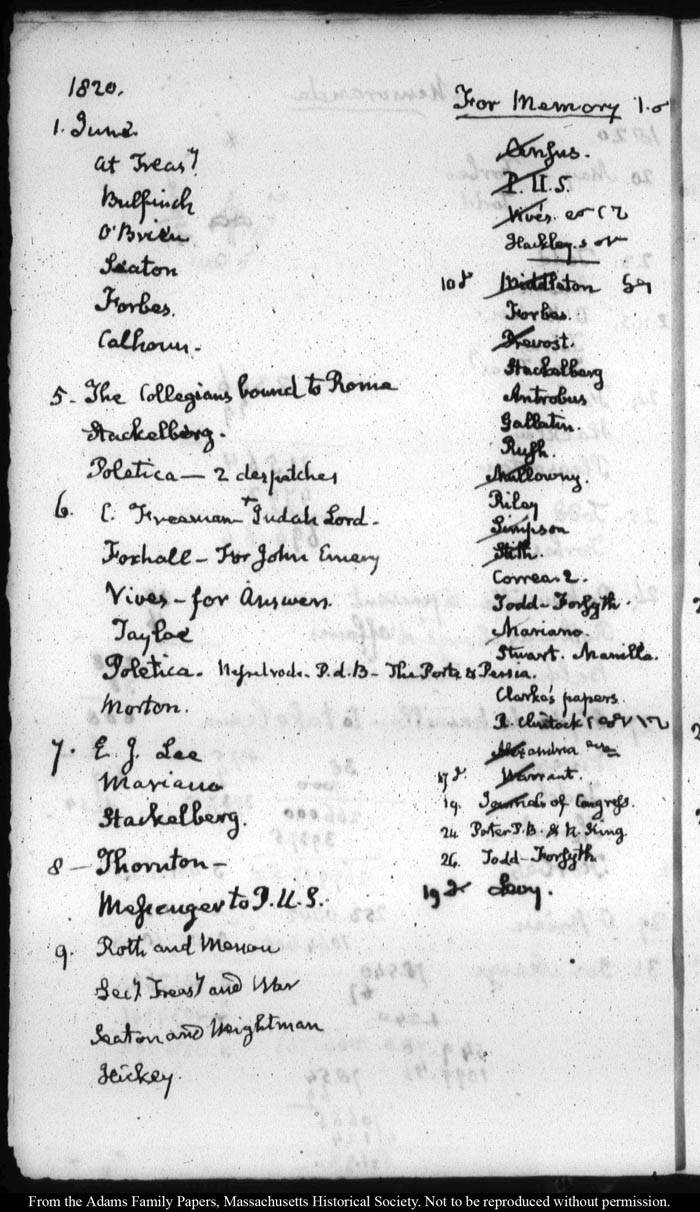 1820.
1. June.
at Treasy
Bulfinch
O'Brien
Seaton
Forbes.
Calhoun.
5- The Collegians bound to Rome
Stackelberg.
Poletica - 2 despatches
6. C. Freeman + Judah Lord-
Foxhall - For John Emery
Vives - for Answers.
Tayloe
Poletica. Nesselrode. P.d.B- The Porte & Persia.
Morton.
7. E. J. Lee
Mariano
Stackelberg.
8- Thornton-
Messenger to P.U.S.
9. Roth and Menou
Secy Treasy and War
Seaton and Weightman
Hickey.
For Memory
Census.
P. U.S.
Vivés.
Hackley.
10 Middleton
Forbes.
Prevost.
Stackelberg
Antrobus
Gallatin.
Rush.
Mullowny.
Riley
Simpson
Stith.
Correa. 2.
Todd-Forsyth.
Mariano.
Stuart. Manilla.
Clarke's papers.
Alexandria
17 Warrant.
19. Journals of Congress.
24. Porter P.B. & W. King
26. Todd-Forsyth
19 Levy.
From the Adams Family Papers, Massachusetts Historical Society. Not to be reproduced without permission.